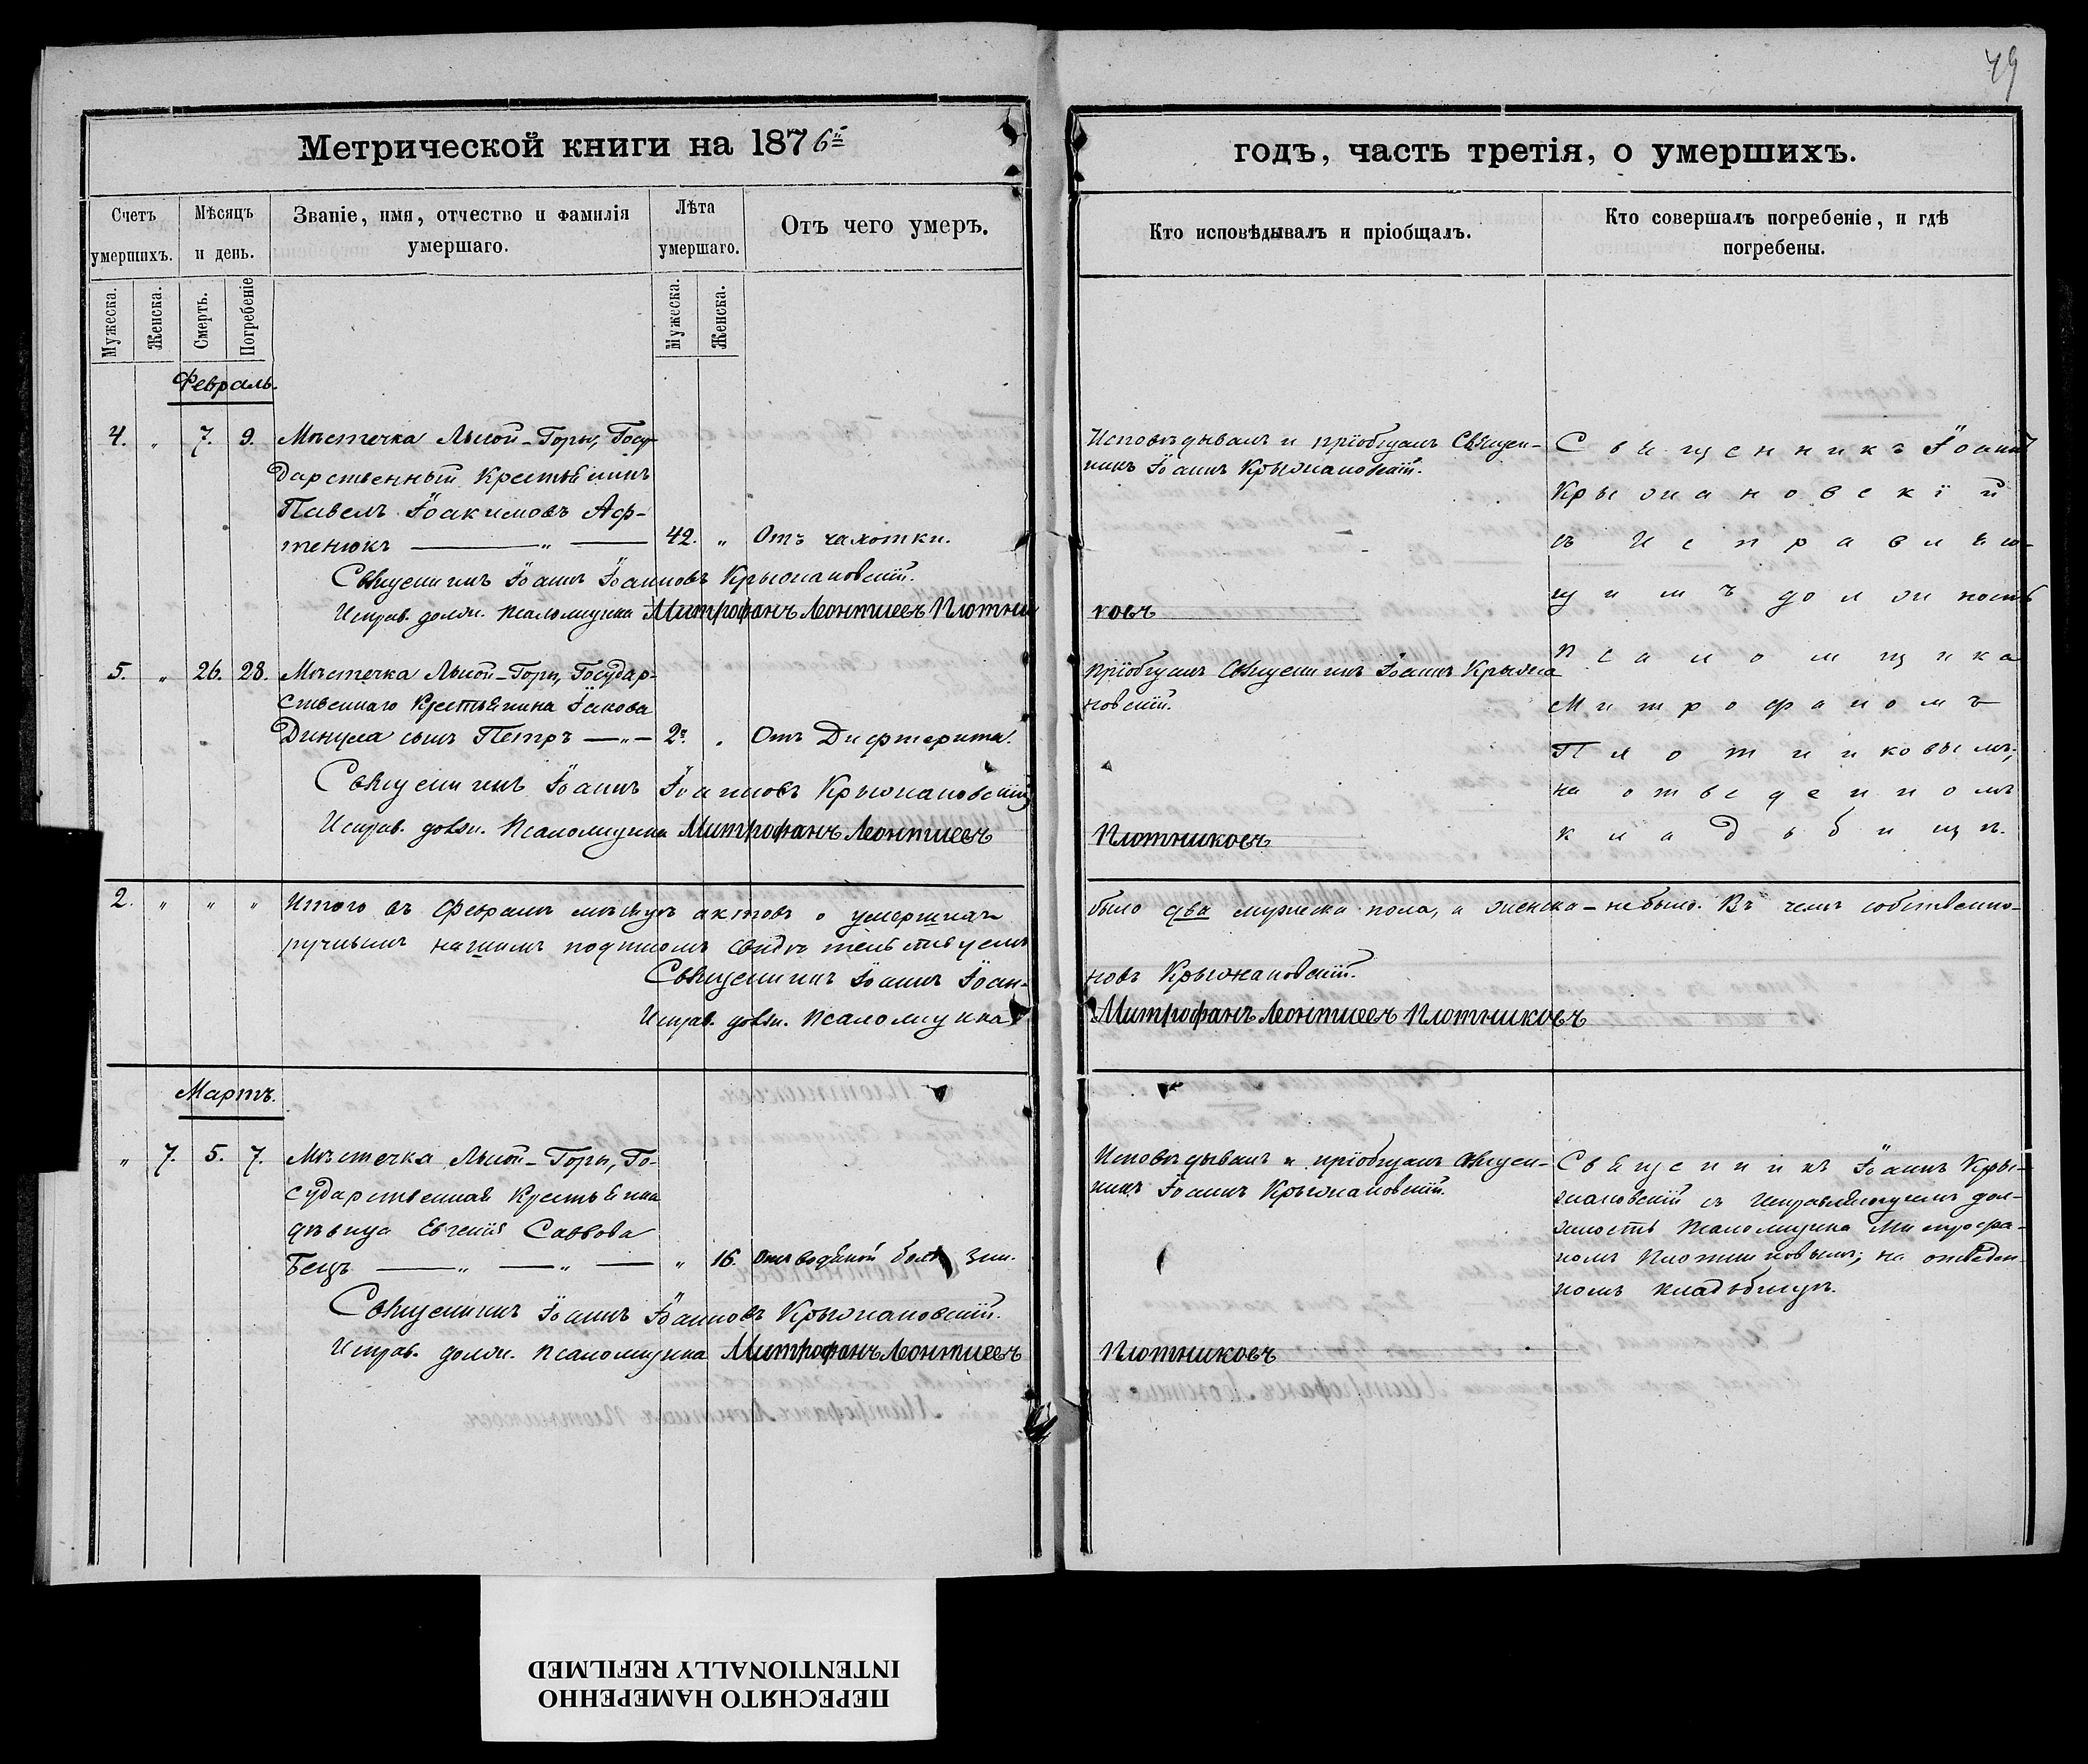 49
Метрической книги на 1876й
годъ, часть третія, о умершихъ.
Счетъ умершихъ.
Мѣсяцъ и день.
Званіе, имя, отчество и фамилія умершаго.
Лѣта умершаго.
Отъ чего умеръ.
Кто исповѣдывалъ и пріобщалъ.
Кто совершалъ погребеніе, и гдѣ погребены.
Мужеска.
Женска.
Смерть.
Погребеніе
Мужеска.
Женска.
Февраль.
4. „ 7. 9. Мѣстечка Лысой-Горы, Госу-
дарственный Крестьянинъ
Павелъ Іоакимовъ Аф-
тенюкъ — „ — 42. „ Отъ чахотки.
Священникъ Іоаннъ Іоанновъ Крыжановскій.
Исправ. долж. Псаломщика Митрофанъ Леонтиевъ Плотни
ковъ
Исповѣдывалъ и пріобщалъ Священ-
никъ Іоаннъ Крыжановскій.
Священникъ Іоаннъ
Крыжановскій
съ Исправляю-
щимъ должность
псаломщика
Митрофаномъ
Плотниковымъ,
на отведенномъ
кладбищѣ.
5. „ 26. 28. Мѣстечка Лысой-Горы, Государ-
ственнаго Крестьянина Іакова
Динула сынъ Петръ — „ — 2. „ Отъ Дифтерита.
Священникъ Іоаннъ Іоанновъ Крыжановскій
Исправ. долж. Псаломщика Митрофанъ Леонтиевъ
Плотниковъ
Пріобщалъ Священникъ Іоаннъ Крыжа
новскій.
2. „ „ „ Итого въ Февралѣ мѣсяцѣ актовъ о умершихъ
было два мужеска пола, а женска - небыло. Въ чемъ собственно-
ручнымъ нашимъ подписомъ свидѣтельствуемъ
Священникъ Іоаннъ Іоан-
новъ Крыжановскій.
Исправ. долж. Псаломщика
Митрофанъ Леонтиевъ Плотниковъ
Мартъ.
„ 7. 5. 7. Мѣстечка Лысой-Горы, Го-
сударственная Крестьянка
дѣвица Евгенія Саввова
Бецъ — „ — „ — „ 16. Отъ водяной болѣзни.
Священникъ Іоаннъ Іоанновъ Крыжановскій.
Исправ. долж. Псаломщика Митрофанъ Леонтиевъ
Плотниковъ
Исповѣдывалъ и пріобщалъ Священ-
никъ Іоаннъ Крыжановскій.
Священникъ Іоаннъ Кры-
жановскій съ Исправляющимъ дол-
жность Псаломщика Митрофа-
номъ Плотниковымъ, на отведен-
номъ кладбищѣ.
ПЕРЕСНЯТО НАМЕРЕННО
INTENTIONALLY REFILMED